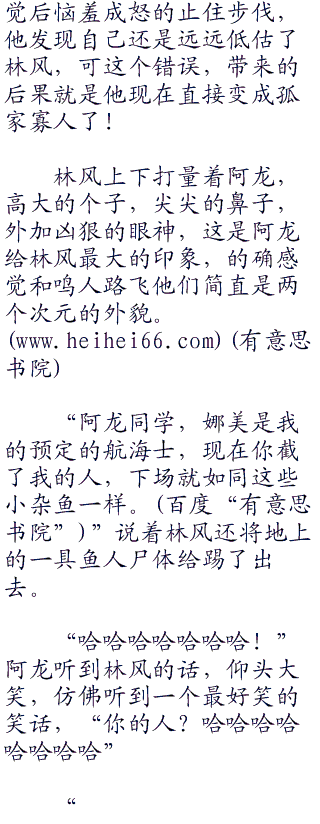 觉后恼羞成怒的止住步伐，
他发现自己还是远远低估了
林风，可这个错误，带来的
后果就是他现在直接变成孤
家寡人了！
林风上下打量着阿龙，
高大的个子，尖尖的鼻子，
外加凶狠的眼神，这是阿龙
给林风最大的印象，的确感
觉和鸣人路飞他们简直是两
个次元的外貌。
(www.heihei66.com)(有意思
书院)
“阿龙同学，娜美是我
的预定的航海士，现在你截
了我的人，下场就如同这些
小杂鱼一样。(百度“有意思
书院”)”说着林风还将地上
的一具鱼人尸体给踢了出
去。
“哈哈哈哈哈哈哈！”
阿龙听到林风的话，仰头大
笑，仿佛听到一个最好笑的
笑话，“你的人？哈哈哈哈
哈哈哈哈”
“